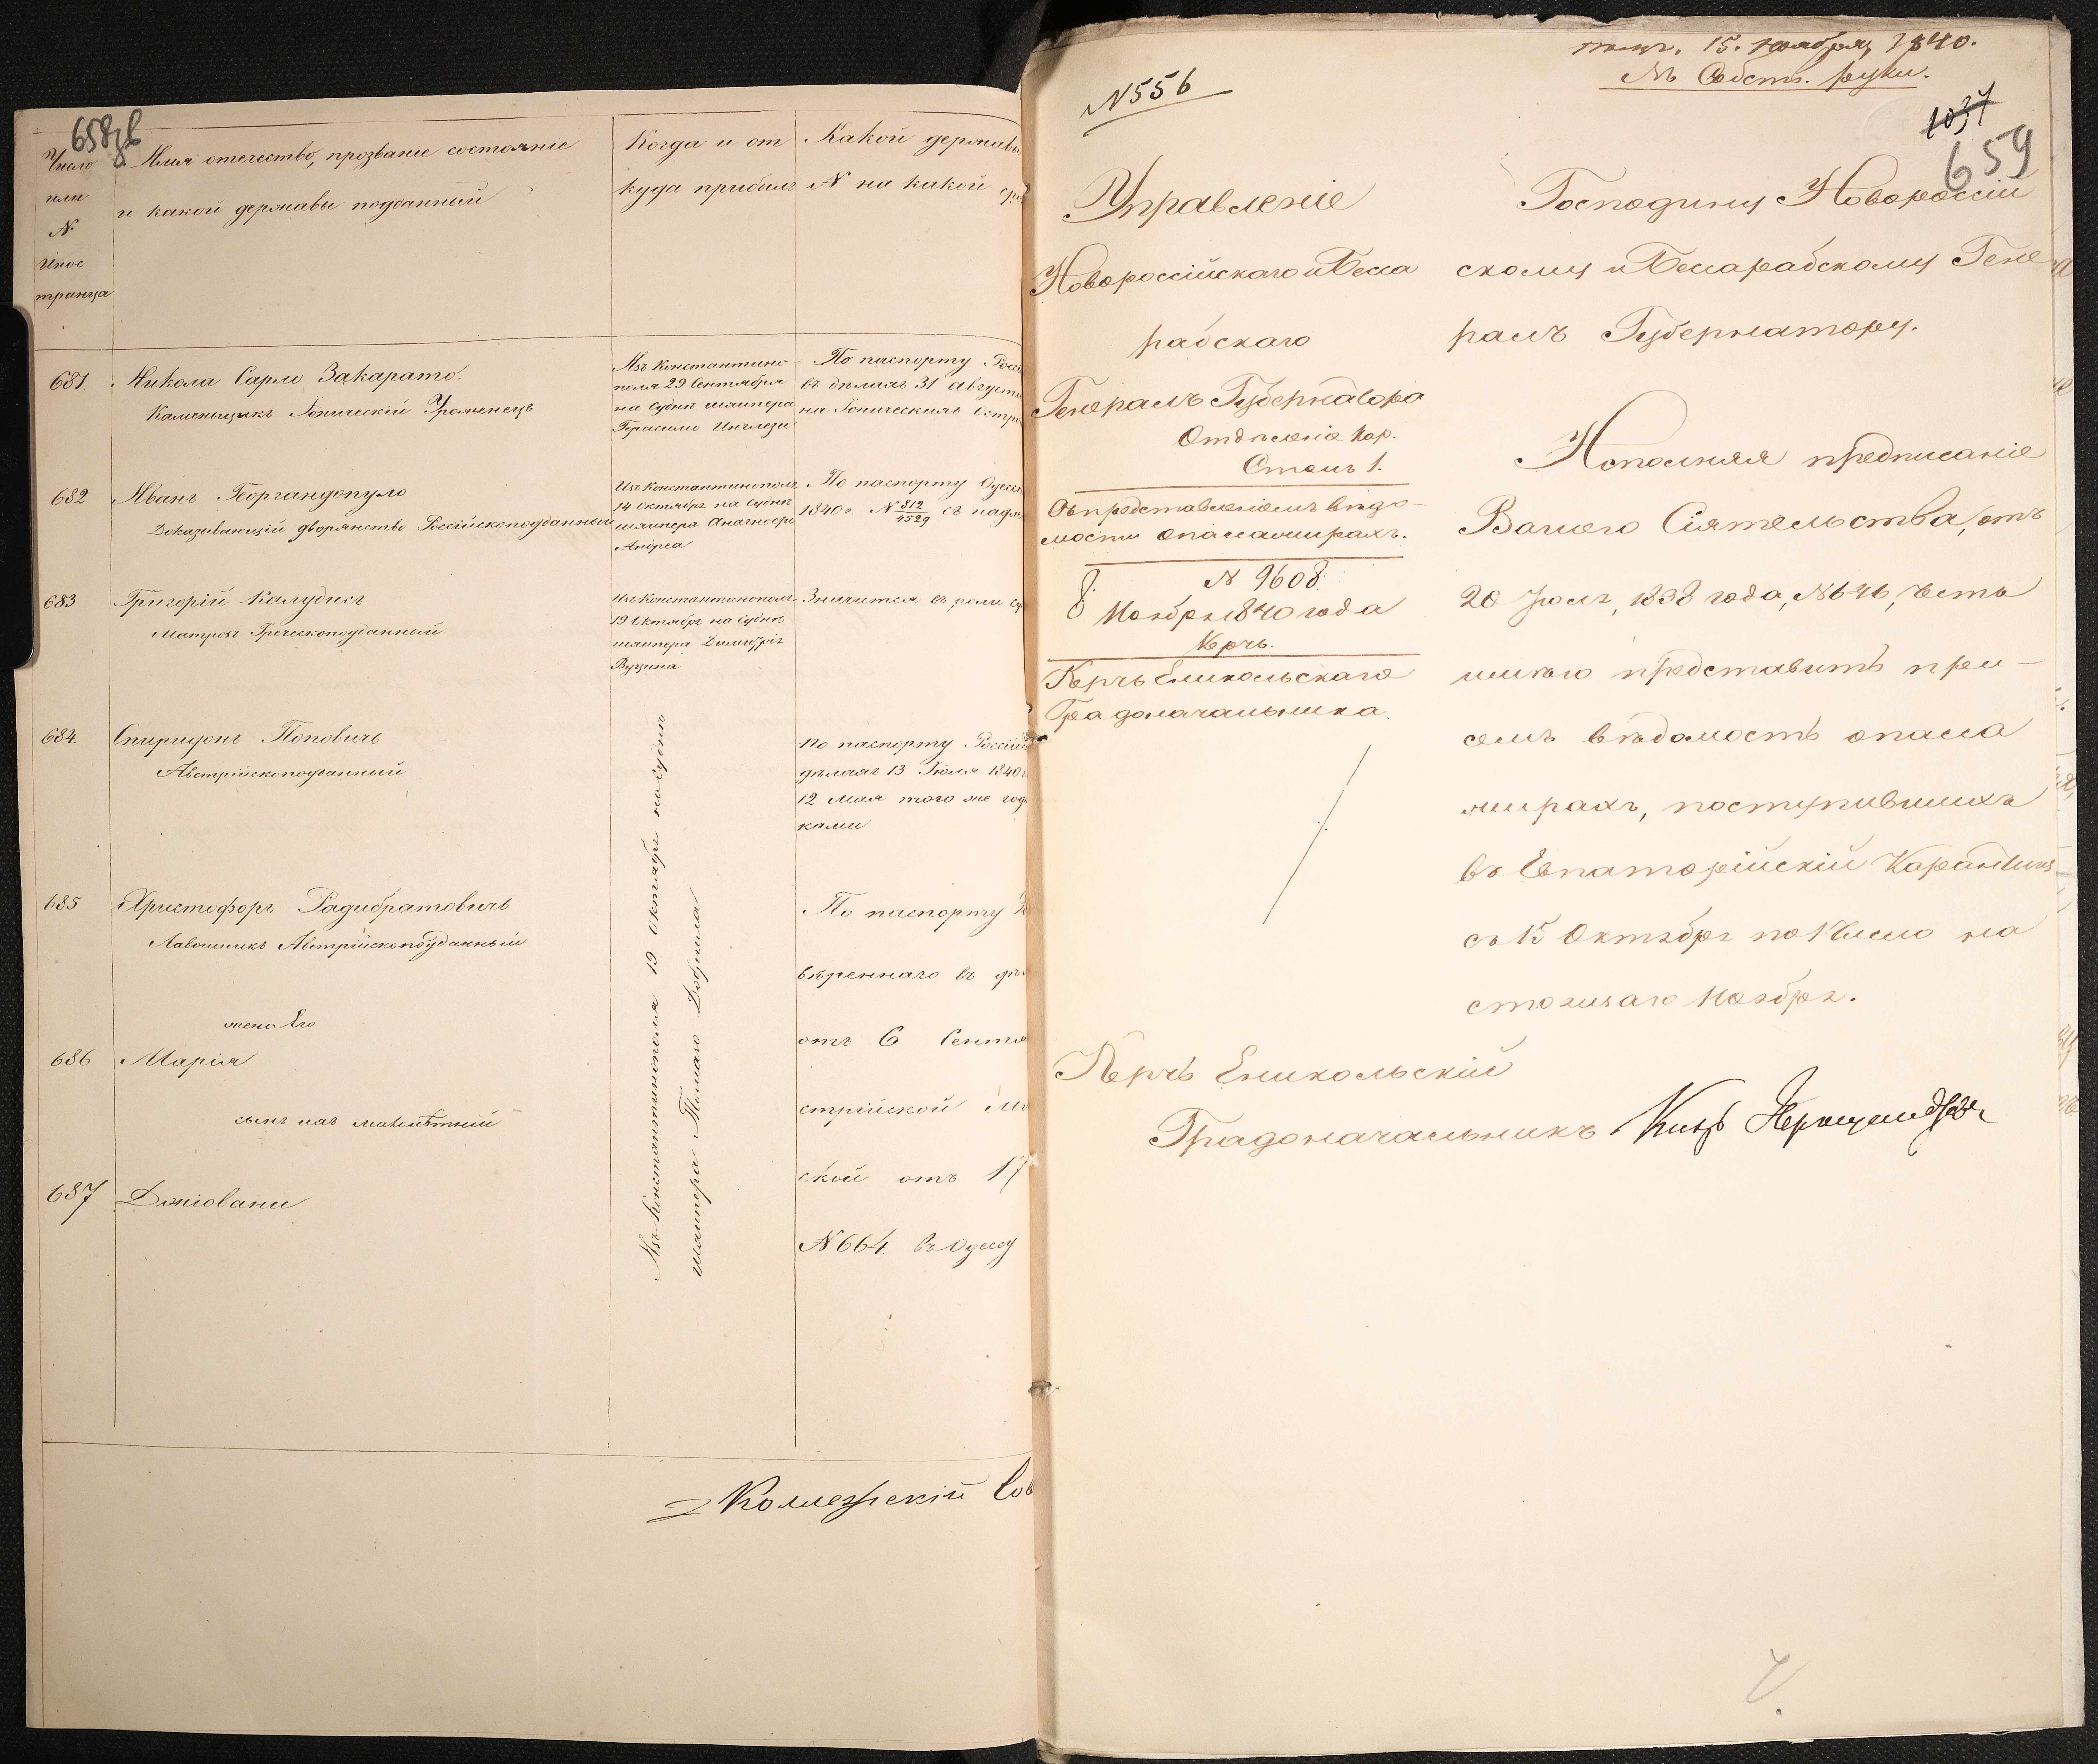 658об
Число
или
№
Инос
транца
Имя отечество, прозвание состояние
и какой державы подданный
Когда и от
куда прибылъ
Какой державы
№ на какой
681.
Никола Сарло Закарато
Каменьщикъ Іоническій Уроженецъ
Изъ Константино-
поля 29 Сентября
на суднѣ шкипера
Герасимо Инглези
По паспорту
въ дѣлахъ 31 Августа
на Іоническихъ Остро
682
Иванъ Георгандопуло
Доказывающій дворянство Россійскоподданный
Изъ Константинополя
14 Октября на суднѣ
шкипера Анагности
Андреа
По паспорту Одесс
1840 г. № 312/4529 съ
683
Григорій Калудисъ
Матросъ Греческоподданный
Изъ Константинополя
19 Октября на суднѣ
шкипера Димитрія
Вуцина
Значится въ роли
684.
Спиридонъ Поповичь
Австрійскоподданный
По паспорту Россій
дѣлахъ 13 Іюля 1840
12 Мая того же года
ками
685
Христофоръ Радибратовичь
Лавошникъ Австрійскоподданный
жена Его
686
Марія
сынъ ихъ малолѣтній
687
Джіовани
Изъ Константинополя 19 Октября на суднѣ
шкипера Томазо Добрила
По паспорту
вѣреннаго въ дѣ
отъ 6 Сентя
стрійской
ской отъ 17
№ 664. въ Одессу
Коллежскій Сов
№ 556
получ. 15. Ноября, 1840.
Въ Собст. руки.
1037
659
Управленіе
Новороссійскаго и Бесса
рабскаго
Генералъ Губернатора
Отдѣленіе Кар.
Столъ 1.
Съ представленіемъ вѣдо-
мости о пассажирахъ.
№ 9608
8 Ноября 1840 года
Керчь.
Керчь Еникольскаго
Градоначальника.
Господину Новороссій
скому и Бессарабскому Гене
ралъ Губернатору.
Исполняя предписаніе
Вашего Сіятельства, отъ
20 Іюля, 1838 года, № 646, честь
имѣю представить при-
семъ вѣдомость о пасса
жирахъ, поступившихъ
въ Евпаторійскій Карантинъ
съ 15 Октября по 1 Число на
стоящаго Ноября.
Керчь Еникольскій
Градоначальникъ Князь Херхеулидзевъ